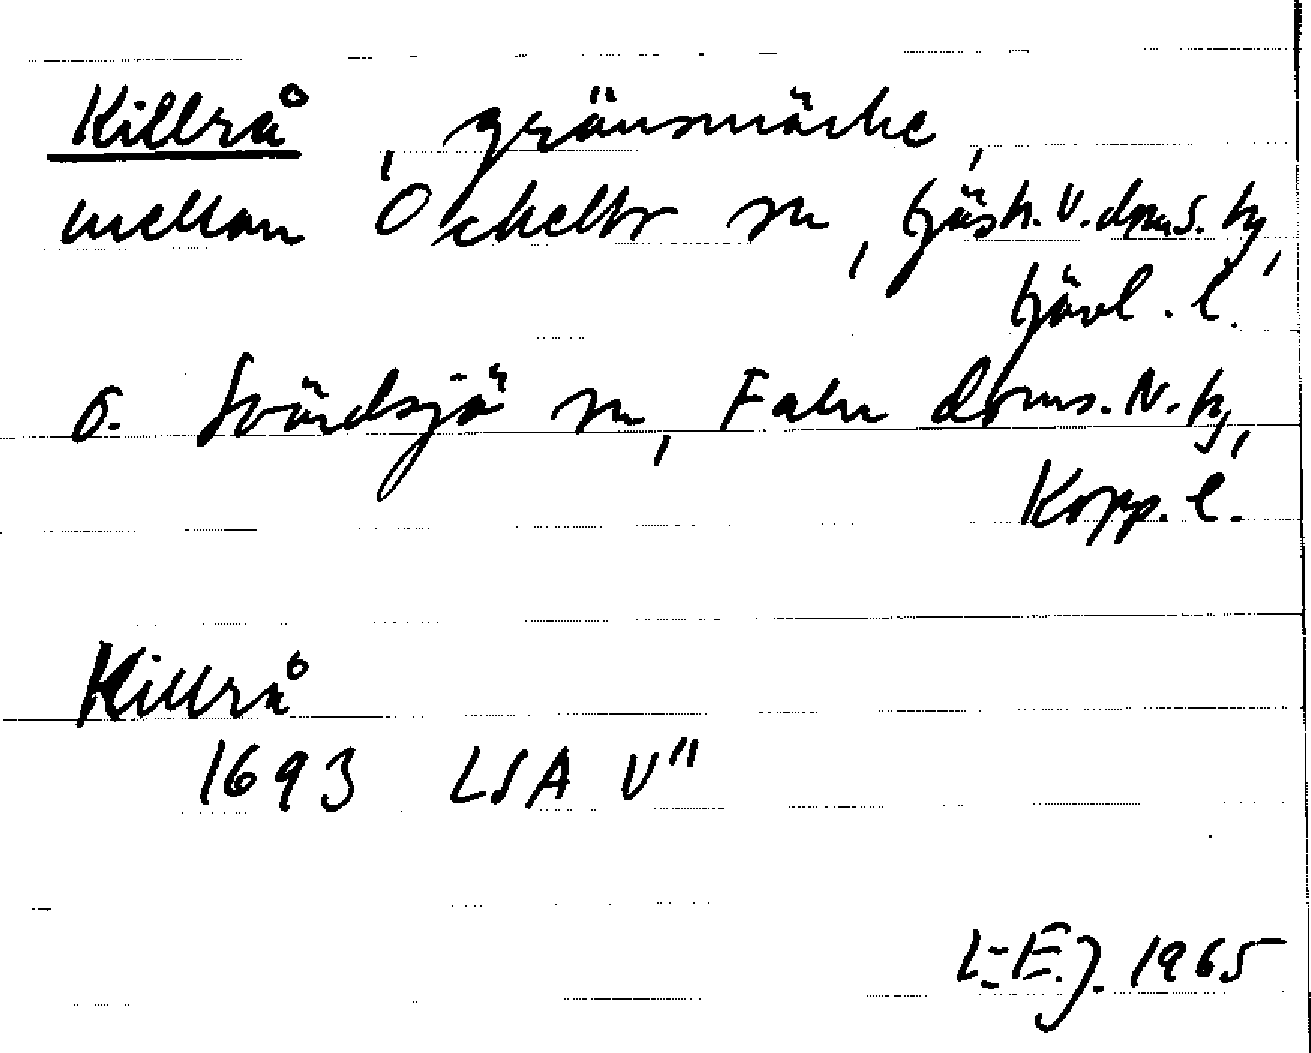 Killrå, gränsmärke,
mellan Ockelbo sn, Gästr. V. doms. hg,
Gävl. l.
o. Svärdsjö sn, Falu doms. N. hg,
Kopp. l.
Killrå
1693 LSA V"
L-E.J. 1965